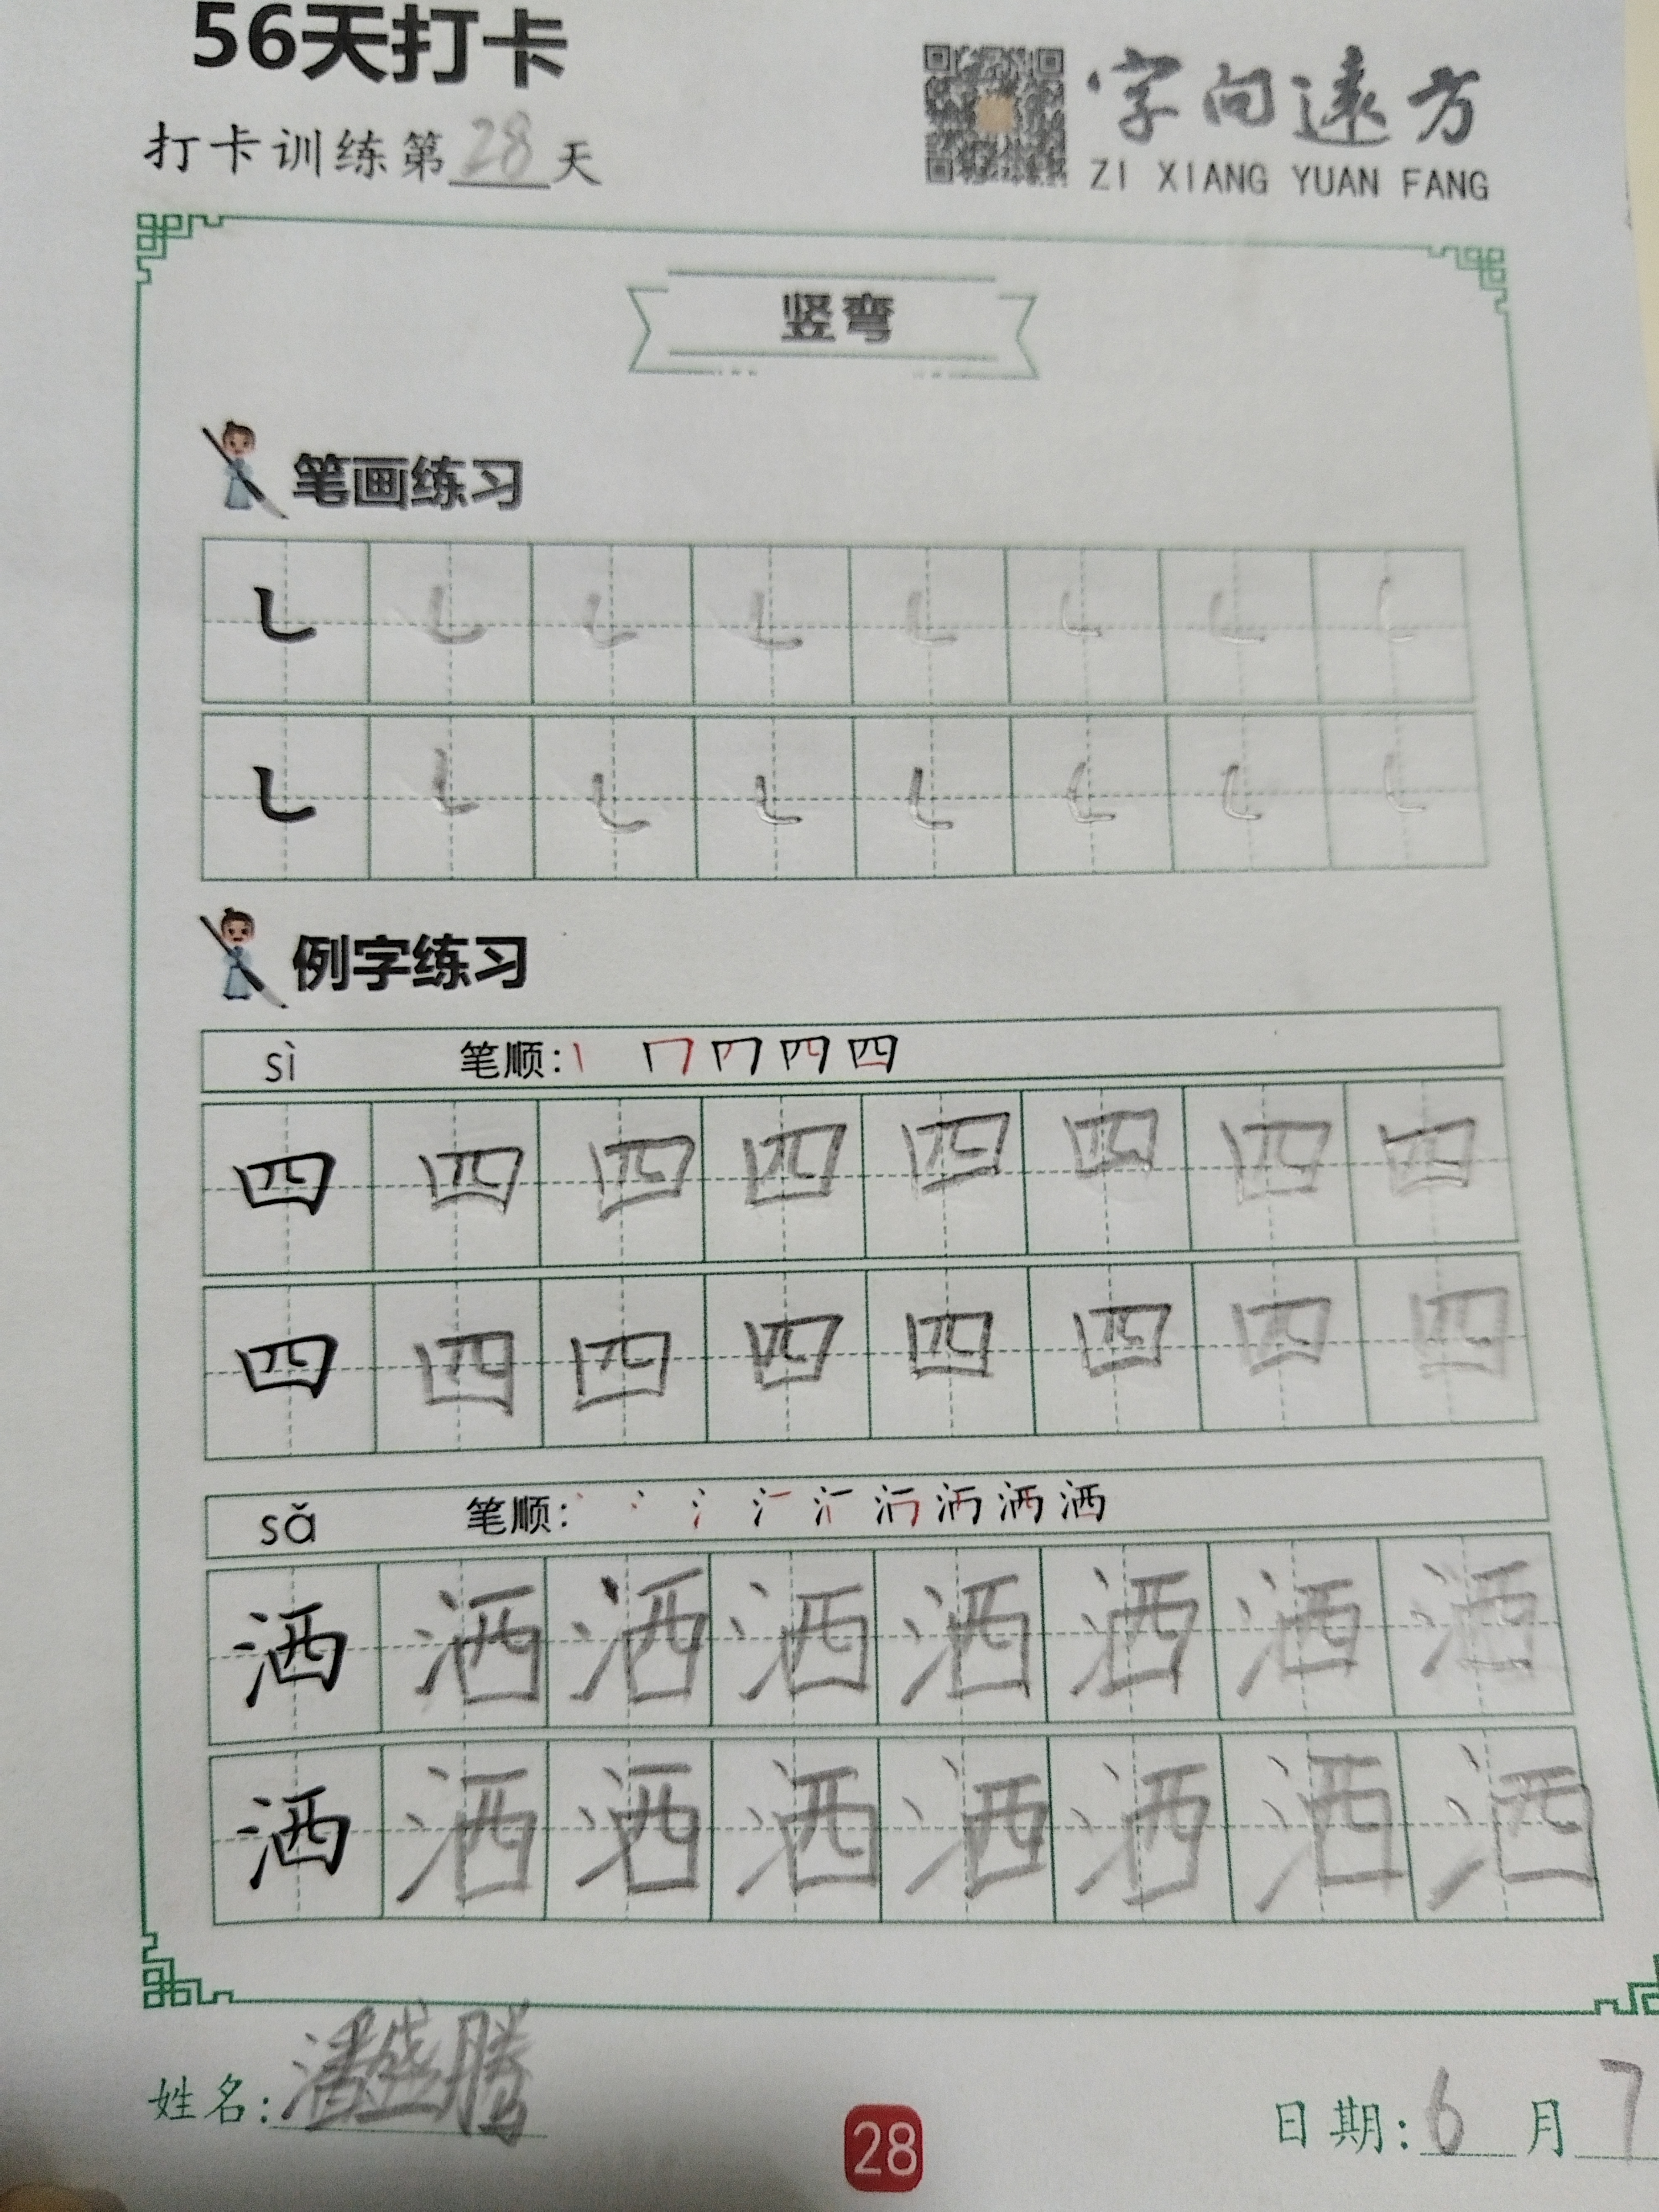 56天打卡
字向远方
打卡训练第28天
ZI XIANG YUAN FANG
竖弯
笔画练习
㇄ ㇄ ㇄ ㇄ ㇄ ㇄ ㇄ ㇄
㇄ ㇄ ㇄ ㇄ ㇄ ㇄ ㇄ ㇄
例字练习
sì 笔顺: 四
四 四 四 四 四 四 四 四
四 四 四 四 四 四 四 四
sǎ 笔顺: 洒
洒 洒 洒 洒 洒 洒 洒 洒
洒 洒 洒 洒 洒 洒 洒 洒
姓名:潘盛腾
日期:6月7
28